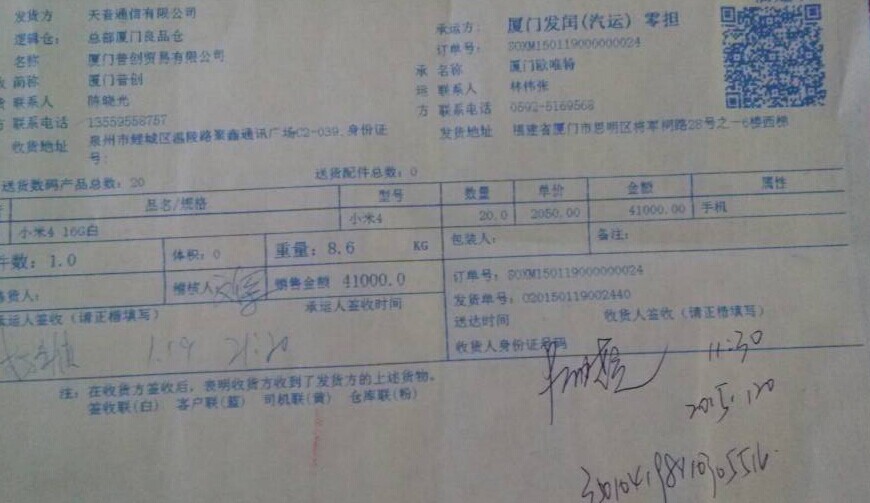 发货方 天音通信有限公司
逻辑仓: 总部厦门良品仓
名称 厦门普创贸易有限公司
简称 厦门普创
联系人 陈晓光
方 联系电话 13559558757
收货地址 泉州市鲤城区温陵路聚鑫通讯广场C2-039.身份证号:
承运方: 厦门发闰(汽运) 零担
订单号: SOXM150119000000024
承 名称 厦门欧唯特
运 联系人 林伟张
方 联系电话 0592-5169568
发货地址 福建省厦门市思明区将军祠路28号之一6楼西梯
送货数码产品总数: 20 送货配件总数: 0
品名/规格 型号 数量 单价 金额 属性
小米4 16G白 小米4 20.0 2050.00 41000.00 手机
件数: 1.0 体积: 0 重量: 8.6 KG 包装人: 备注:
货人: 稽核人 销售金额 41000.0
订单号: SOXM150119000000024
发货单号: 020150119002440
承运人签收 (请正楷填写) 承运人签收时间
送达时间 收货人签收 (请正楷填写)
收货人身份证号码
1.19 21:20
11:30
2015.1.20
注: 在收货方签收后, 表明收货方收到了发货方的上述货物。
签收联(白) 客户联(蓝) 司机联(黄) 仓库联(粉)